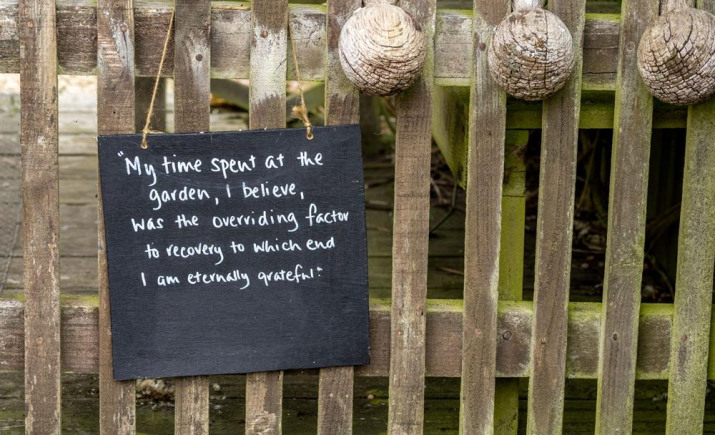 "My time spent at the
garden, I believe,
was the overriding factor
to recovery to which end
I am eternally grateful."